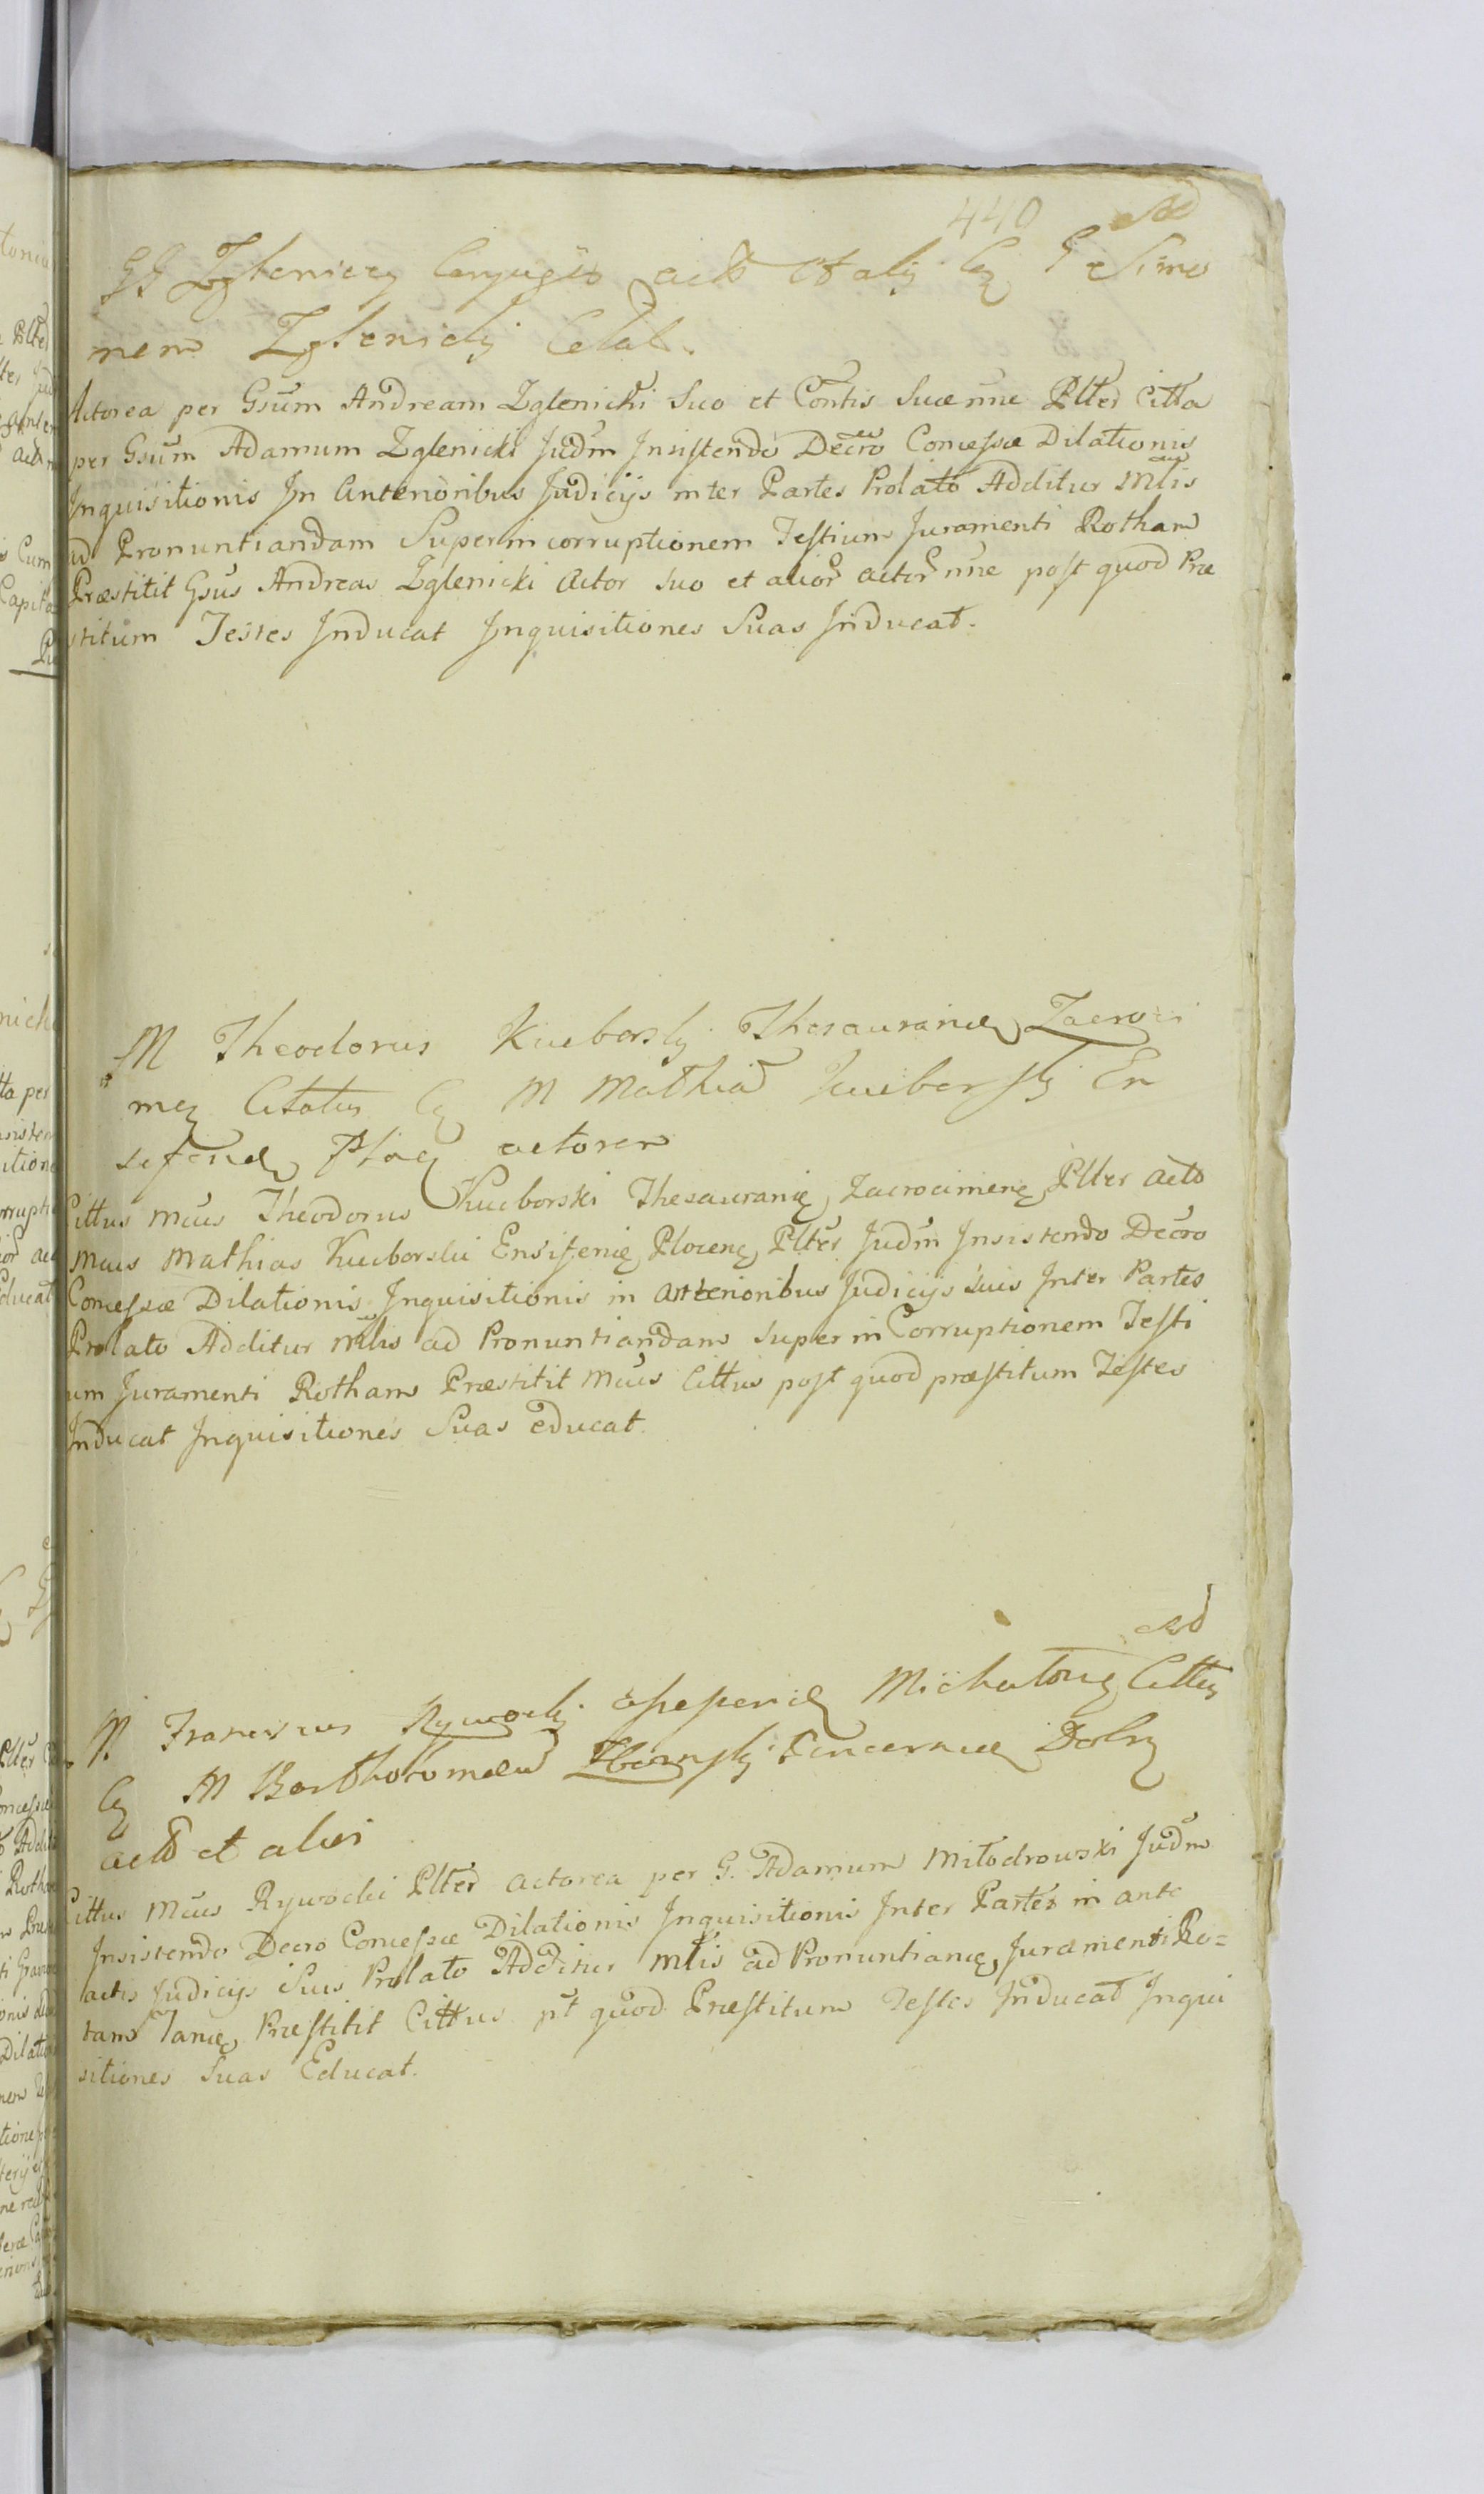 440
GG Zgleniccy Conjuges act et alij C G Simo
nem Zglenicki Citat.
Actorea per Gsum Andream Zglenicki Suo et Contis Suæ nne Plter Citta
per Gsum Adamum Zglenicki Judm Insistendo Decro Concessæ Dilationis
Inquisitionis In Anterioribus Judicijs inter Partes Prolato Additur Mlis
ad Pronuntiandam Super in corruptionem Testium Juramenti Rotham
Præstitit Gsus Andreas Zglenicki Actor suo et alior actor nne post quod Præ
stitum Testes Inducat Inquisitiones Suas Inducat.
M Theodorus Kucborski Thesaurarie Zacroci
men Citatus C M Mathia Kucborski En
siferide Ploc actorem
Cittus Mcus Theodorus Kucborski Thesauranię Zacrocimenę Plter Acto
Mcus Mathias Kucborski Ensifenię Plocenę Plter Judm Insistendo Decro
Concessæ Dilationis Inquisitionis in Anterioribus Judicijs suis Inter Partes
Prolato Additur Mlis ad Pronuntiandam super in Corruptionem Testi
um Juramenti Rotham Præstitit Mcus Cittus post quod præstitum Testes
Inducat Inquisitiones Suas educat.
M Franciscus Rywocki Michalouę Cittus
C M Bartholomæu Pincernide Dobrz
acto et alios
Cittus Mcus Rywocki Plter Actorea per G. Adamum Miłodrowski Judm
Insistendo Decro Concessæ Dilationis Inquisitionis Inter Partes in ante
actis Judicijs Suis Prolato Additur Mlis ad Pronuntianę Juramenti Ro=
tam Tanę Præstitit Cittus pt quod Præstitum Testes Inducat Inqui
sitiones Suas Educat.